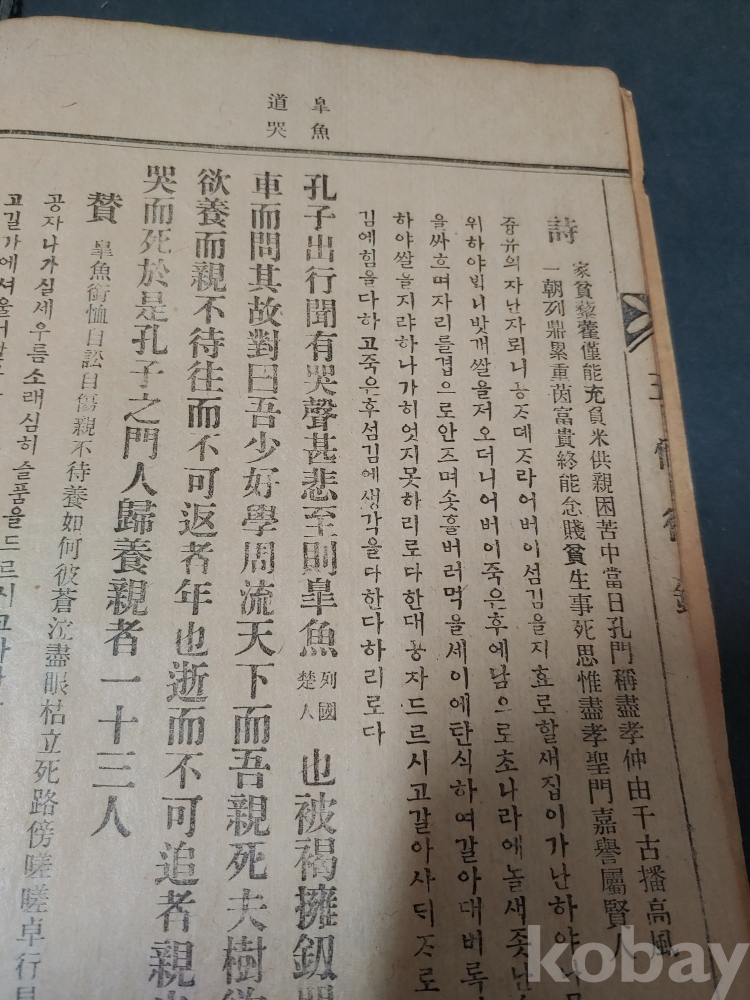 家貧藜藿僅能充負米供親困苦中當日孔門稱盡孝仲由千古播高風
詩
一朝列鼎累重茵富貴終能念賤貧生事死思惟盡孝聖門嘉譽屬賢人
즁유의자난자뢰니공ᄌᆞ뎨ᄌᆞ라어버이섬김을지효로할새집이가난하야
위하야빅니밧개쌀을저오더니어버이죽은후에남으로초나라애놀새좃난
을싸흐며자리를겹으로안즈며솟흘버러먹을세이에탄식하여갈아대비록
하야쌀을지랴하나가히엇지못하리로다한대공자드르시고갈아사ᄃᆡᄌᆞ로
김에힘을다하고죽은후섬김에생각을다한다하리로다
皐魚
道哭
孔子出行聞有哭聲甚悲至則皐魚 列國楚人 也被褐擁釰
車而問其故對曰吾少好學周流天下而吾親死夫樹欲
欲養而親不待往而不可返者年也逝而不可追者親也
哭而死於是孔子之門人歸養親者一十三人
贊 皐魚銜恤自訟自傷親不待養如何彼蒼泣盡眼枯立死路傍嗟嗟卓行
공자나가실세우름소래심히슬품을드르시고
고길가에셔울거
kobay